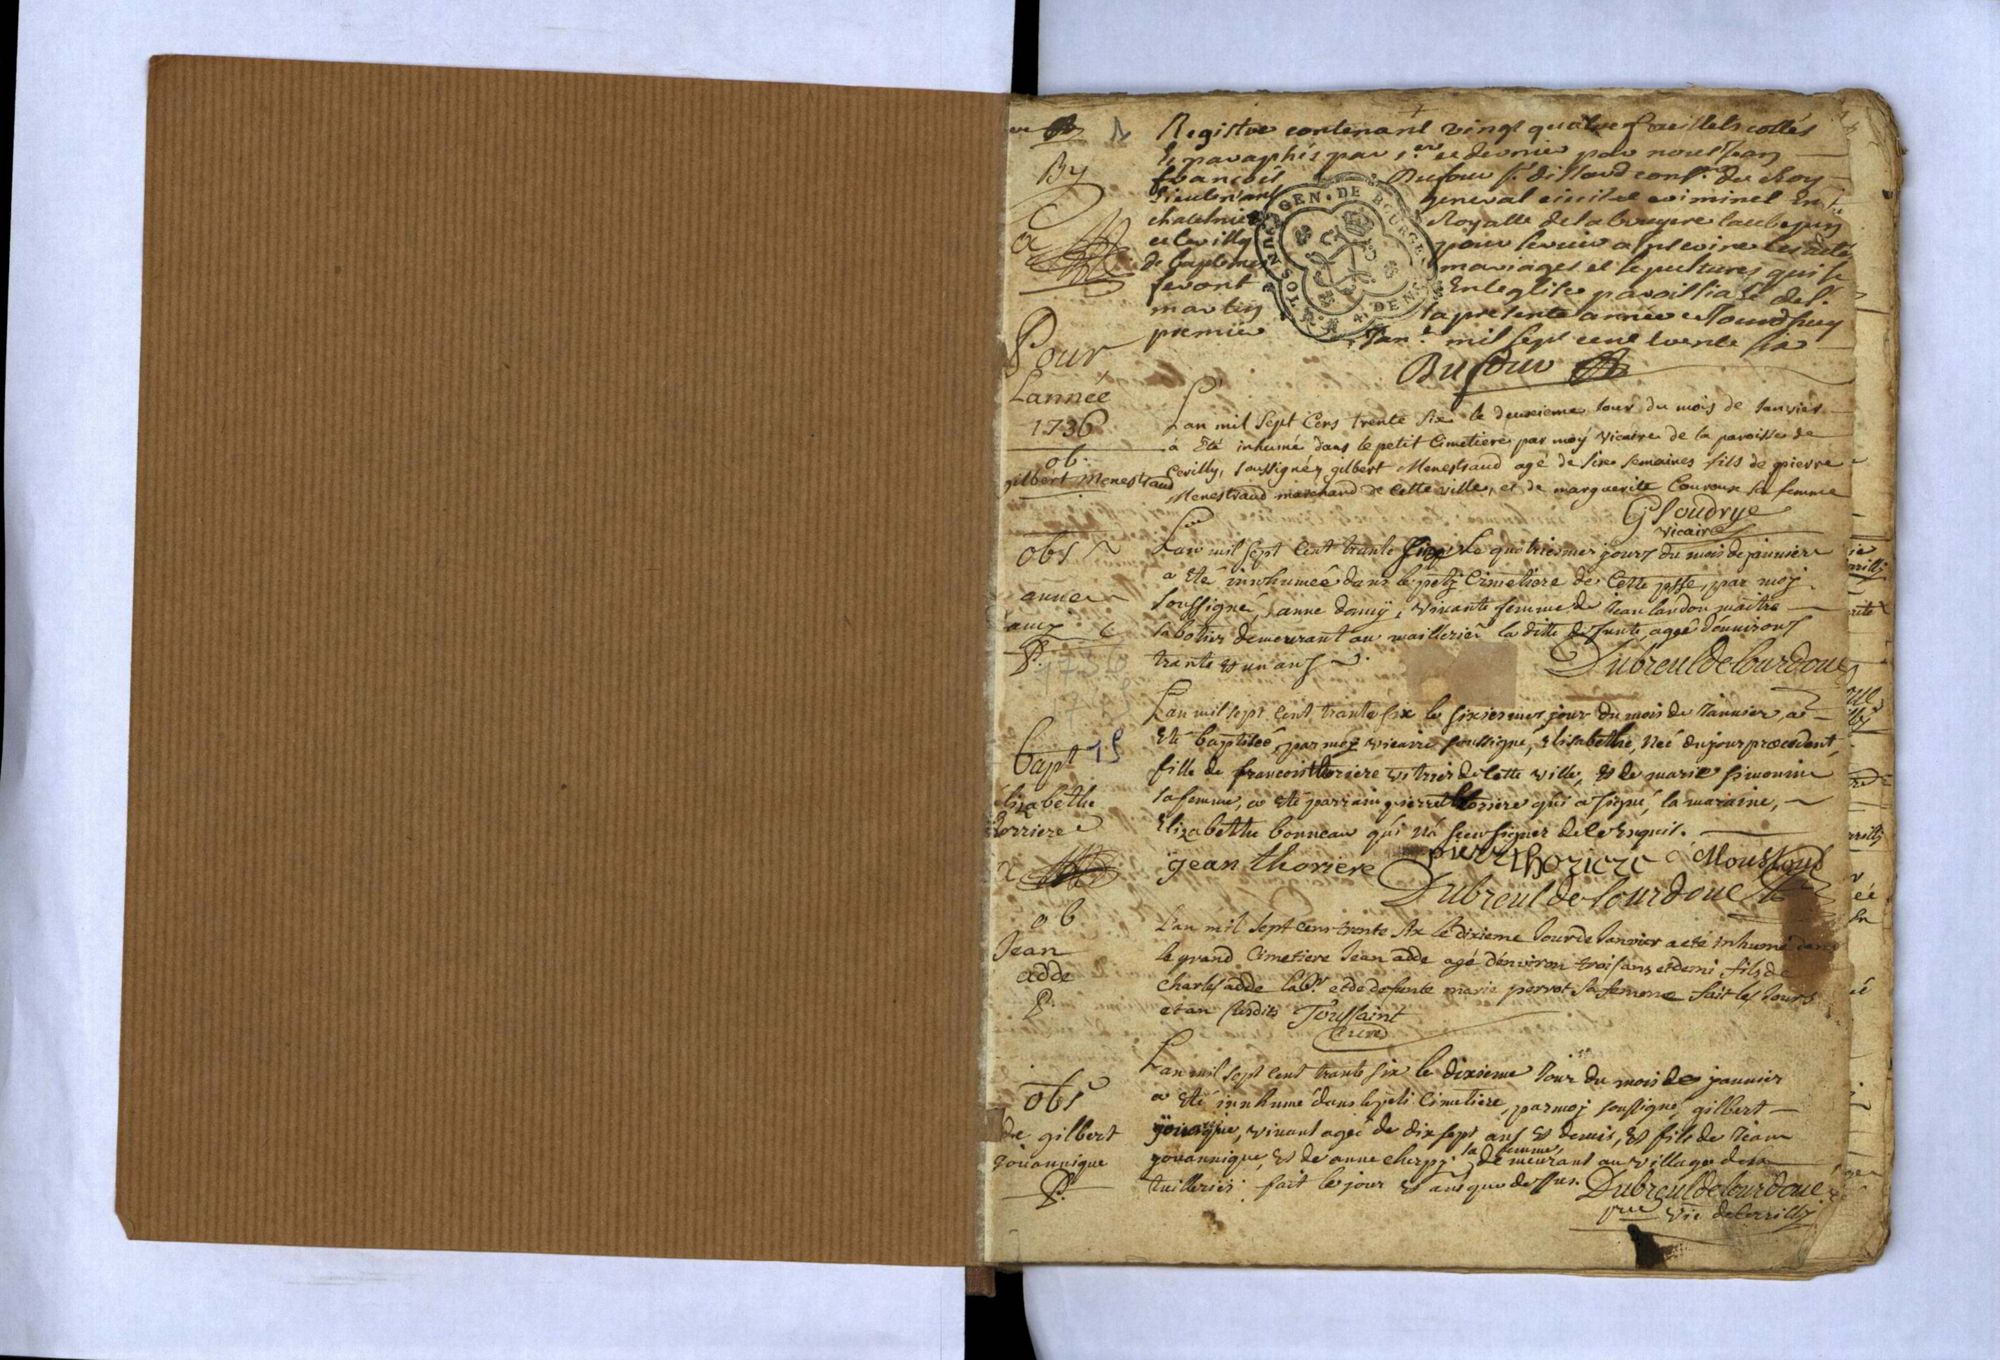 Registre contenant vingt quatre feuillets cottés
et paraphés par 1.er et dernier par nous Jean
françois Dufour s.r dillard cons.er du Roy
Lieutenant general civil et criminel En la
chatelnie Royalle de la bruyere laubepin
et Cerilly pour servir a inscrire les actes
de baptemes mariages et sepultures qui se
feront En leglise paroissialle de s.t
martin la presente année ce Jourdhuy
premier Jan.r mil sept cent trente six
Dufour
GEN. DE BOURGES
DEN.
Pour
Lannée
1736
ob.
gilbert Menestraud
Lan mil Sept Cens trente Six le deuxieme Jour du mois de Janvier
à Eté inhumé dans le petit Cimetiere par moy vicaire de la paroisse de
Cerilly, soussigné, gilbert Menestraud agé de six semaines fils de pierre
Menestraud marchand de cette ville, et de marguerite Couroux sa femme
G Soudrye
vicaire
obs
anne
damy
P.
1736
Lan mil sept Cent trante six Le quatriesme jours du mois de janvier
a Eté innhumeé dans le petit Cimetiere de Cette psse, par moy
soussigné, anne damy, vivante femme de Jean landon maitre
sabotier demeurant au maillerier la ditte defunte, aggé d'environs
trante et un ans
Dubreuil de lourdoue
Bapt 15
Elizabethe
thorriere
Lan mil sept Cent trante six le sixiesmes jour du mois de Janvier a
Eté baptiseé, par moy vicaire soussigné, Elisabethe, Neé du jour præcedent,
fille de francois thoriere vitrier de Cette ville, et de marie simonin
sa femme, a Eté parrain pierre thoriere qui a signé, la maraine,
Elizabethe bonneau qui Na sceu signer de ce Enquis.
jean thoriere pierre thoriere Moussoud
Dubreuil de lourdoue
ob
Jean
adde
P.
Lan mil Sept Cens trente Six le dixieme Jour de Janvier a eté inhumé dans
le grand Cimetiere Jean adde agé d'environ trois ans et demi fils de
Charles adde lab.r et de defunte marie perrot sa femme fait les Jours
et an susdits Toussaint
Curé
obs
de gilbert
goüannique
P.
Lan mil sept Cent trante six le dixieme Jour du mois de janvier
a Eté innhumé dans le peti Cimetiere, par moy soussigné, gilbert
goüannique, vivant ageé de dix sept ans et demis, et fils de Jean
goüannique, et de anne cherpy sa femme, demeurant au village des
tuilleries, fait le jour et ans que dessus. Dubreuil de lourdoue
ptre Vic de Cerilly